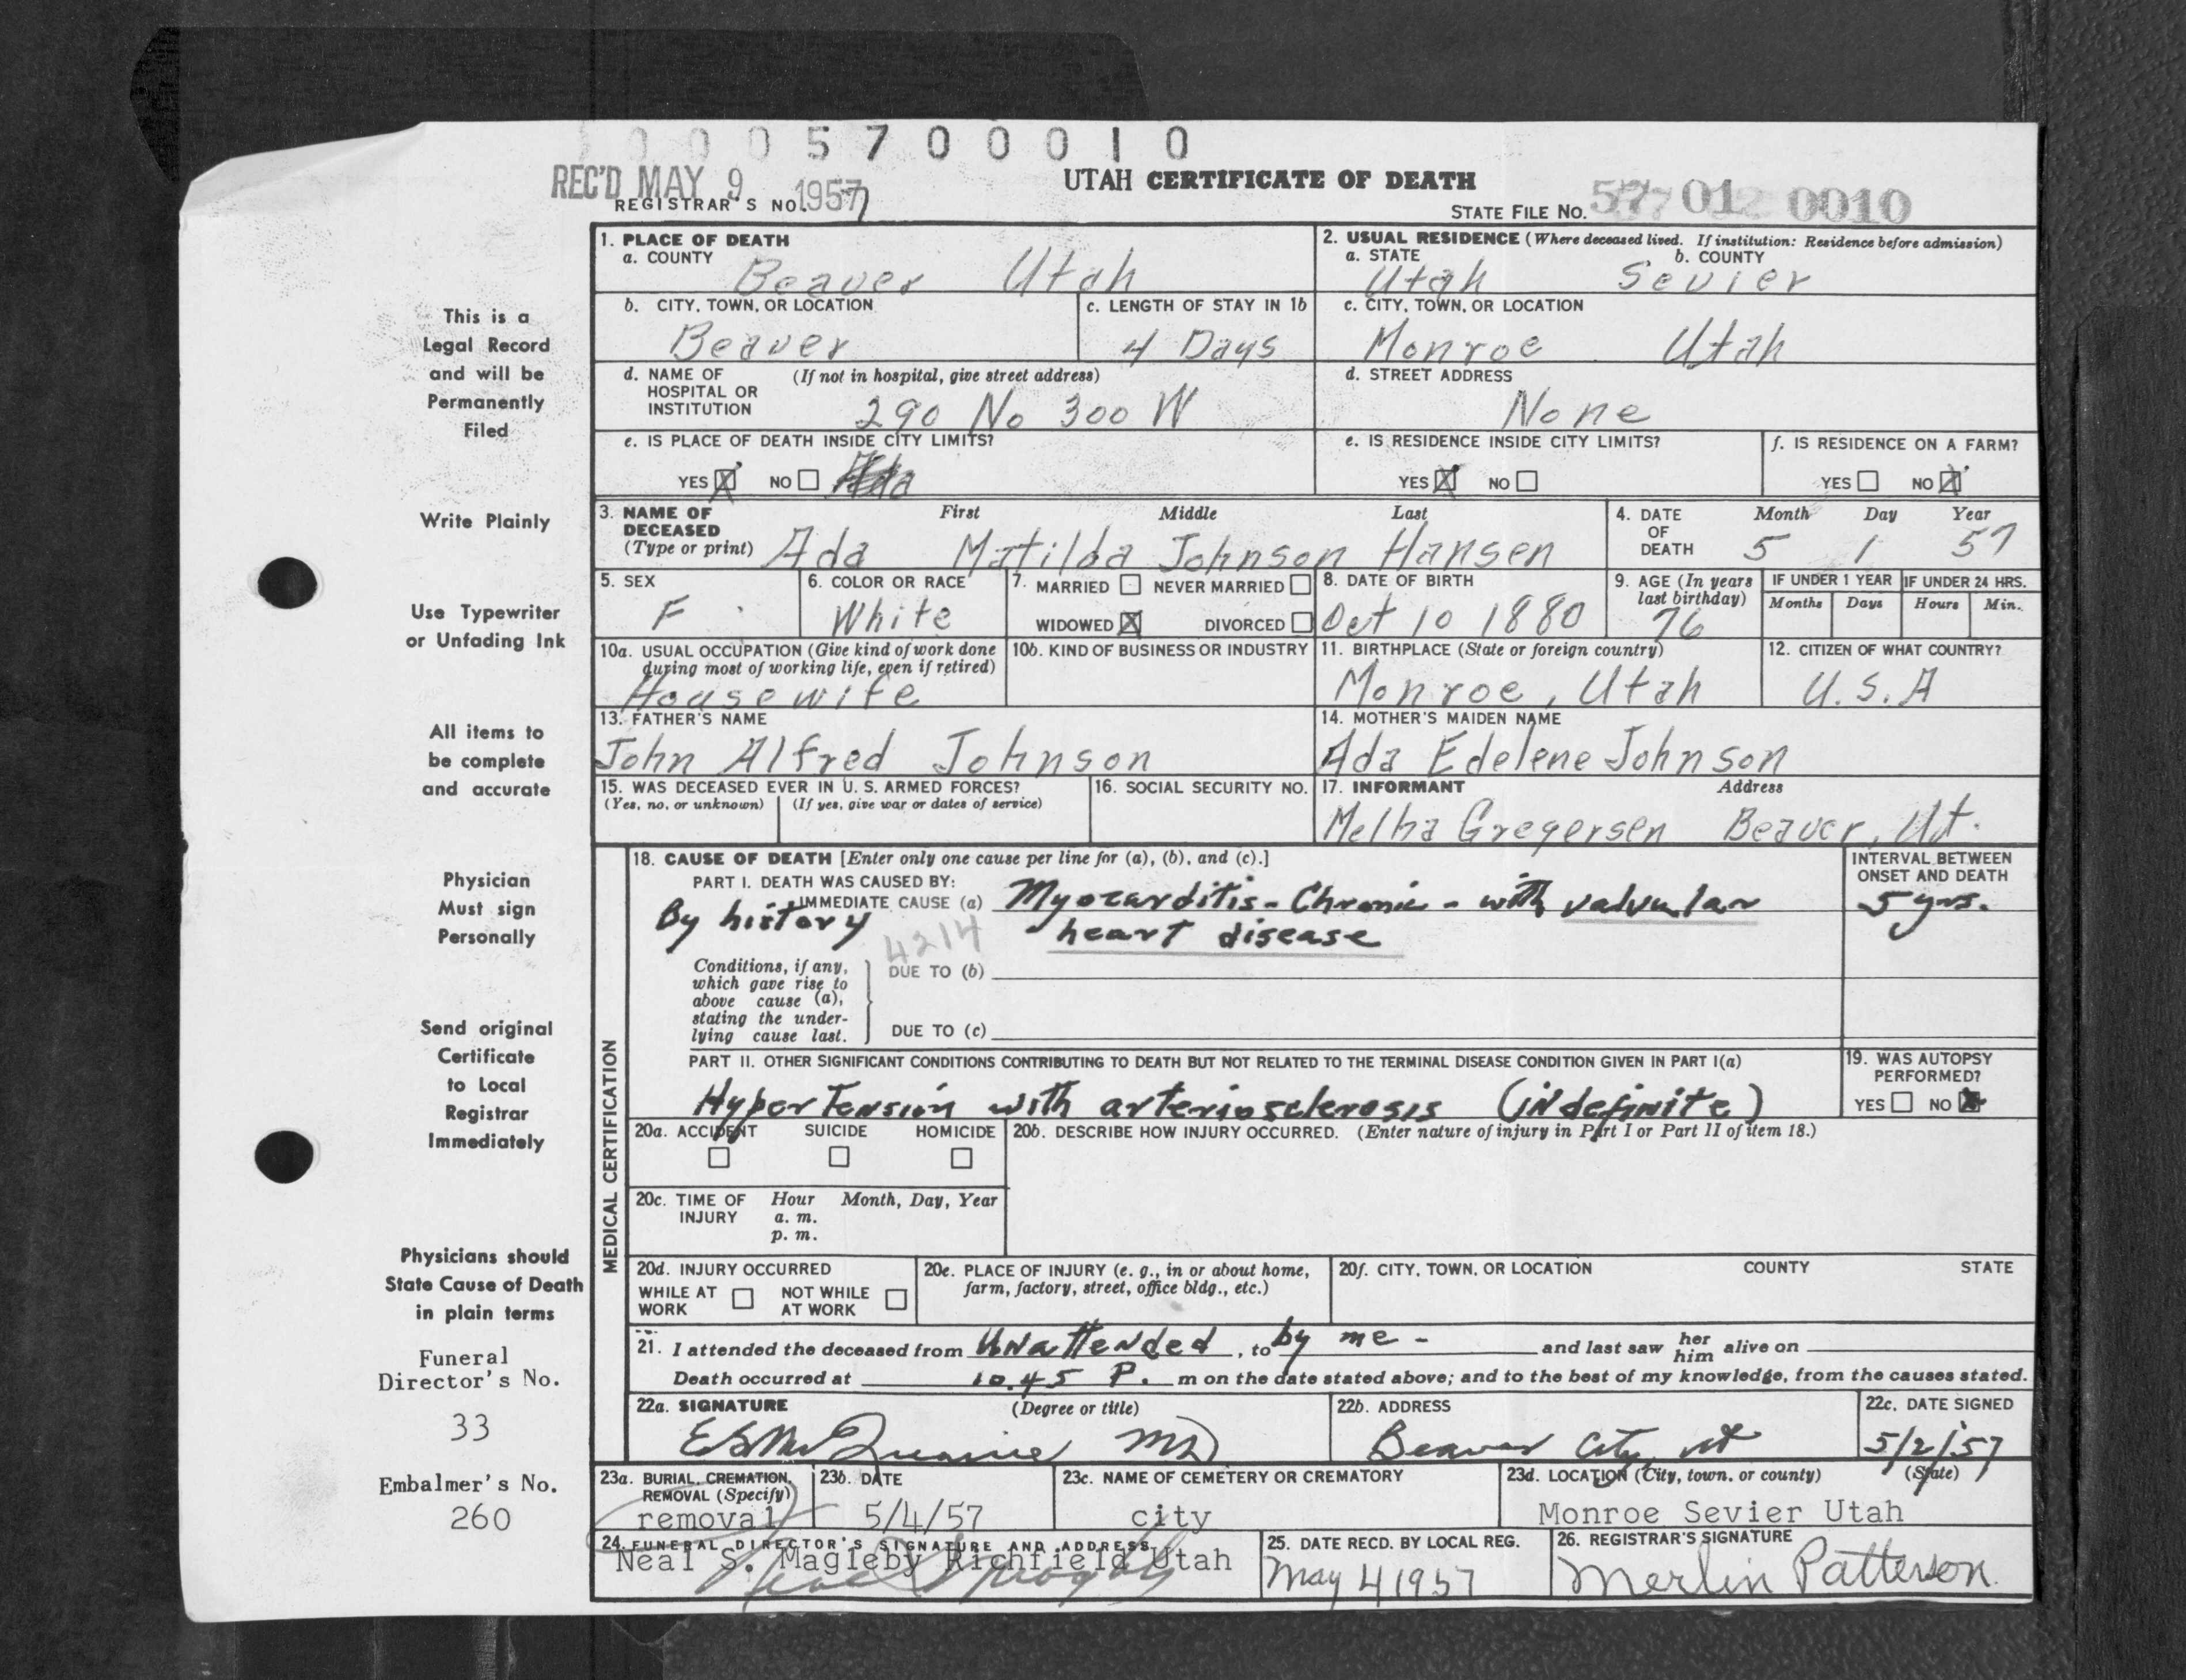 0 0 0 5 7 0 0 0 1 0
REC'D MAY 9 1957
UTAH CERTIFICATE OF DEATH
REGISTRAR'S NO. 7
STATE FILE NO. 57 01 0010
This is a
Legal Record
and will be
Permanently
Filed
Write Plainly
Use Typewriter
or Unfading Ink
All items to
be complete
and accurate
Physician
Must sign
Personally
Send original
Certificate
to Local
Registrar
Immediately
Physicians should
State Cause of Death
in plain terms
Funeral
Director's No.
33
Embalmer's No.
260
1. PLACE OF DEATH
a. COUNTY
Beaver Utah
2. USUAL RESIDENCE (Where deceased lived. If institution: Residence before admission)
a. STATE b. COUNTY
Utah Sevier
b. CITY, TOWN, OR LOCATION
Beaver
c. LENGTH OF STAY IN 1b
4 Days
c. CITY, TOWN, OR LOCATION
Monroe Utah
d. NAME OF (If not in hospital, give street address)
HOSPITAL OR
INSTITUTION
290 No 300 W
d. STREET ADDRESS
None
e. IS PLACE OF DEATH INSIDE CITY LIMITS?
YES X NO
e. IS RESIDENCE INSIDE CITY LIMITS?
YES X NO
f. IS RESIDENCE ON A FARM?
YES NO X
3. NAME OF First Middle Last
DECEASED
(Type or print) Ada Matilda Johnson Hansen
4. DATE Month Day Year
OF
DEATH 5 1 57
5. SEX
F
6. COLOR OR RACE
White
7. MARRIED NEVER MARRIED
WIDOWED X DIVORCED
8. DATE OF BIRTH
Oct 10 1880
9. AGE (In years
last birthday)
76
IF UNDER 1 YEAR IF UNDER 24 HRS.
Months Days Hours Min.
10a. USUAL OCCUPATION (Give kind of work done
during most of working life, even if retired)
Housewife
10b. KIND OF BUSINESS OR INDUSTRY
11. BIRTHPLACE (State or foreign country)
Monroe, Utah
12. CITIZEN OF WHAT COUNTRY?
U.S.A
13. FATHER'S NAME
John Alfred Johnson
14. MOTHER'S MAIDEN NAME
Ada Edelene Johnson
15. WAS DECEASED EVER IN U. S. ARMED FORCES?
(Yes, no, or unknown) (If yes, give war or dates of service)
16. SOCIAL SECURITY NO.
17. INFORMANT Address
Melba Gregersen Beaver, Ut.
MEDICAL CERTIFICATION
18. CAUSE OF DEATH [Enter only one cause per line for (a), (b), and (c).]
INTERVAL BETWEEN
ONSET AND DEATH
PART I. DEATH WAS CAUSED BY:
IMMEDIATE CAUSE (a) Myocarditis - Chronic - with valvular
5 yrs.
By history heart disease
4214
Conditions, if any,
which gave rise to
above cause (a),
stating the under-
lying cause last.
DUE TO (b)
DUE TO (c)
PART II. OTHER SIGNIFICANT CONDITIONS CONTRIBUTING TO DEATH BUT NOT RELATED TO THE TERMINAL DISEASE CONDITION GIVEN IN PART I(a)
Hypertension with arteriosclerosis (indefinite)
19. WAS AUTOPSY
PERFORMED?
YES NO X
20a. ACCIDENT SUICIDE HOMICIDE
20b. DESCRIBE HOW INJURY OCCURRED. (Enter nature of injury in Part I or Part II of item 18.)
20c. TIME OF Hour Month, Day, Year
INJURY a. m.
p. m.
20d. INJURY OCCURRED
WHILE AT NOT WHILE
WORK AT WORK
20e. PLACE OF INJURY (e. g., in or about home,
farm, factory, street, office bldg., etc.)
20f. CITY, TOWN, OR LOCATION COUNTY STATE
21. I attended the deceased from Unattended, to by me - and last saw her him alive on
Death occurred at 10.45 P. m on the date stated above; and to the best of my knowledge, from the causes stated.
22a. SIGNATURE (Degree or title)
MD
22b. ADDRESS
Beaver City Ut
22c. DATE SIGNED
5/2/57
23a. BURIAL, CREMATION,
REMOVAL (Specify)
removal
23b. DATE
5/4/57
23c. NAME OF CEMETERY OR CREMATORY
city
23d. LOCATION (City, town, or county) (State)
Monroe Sevier Utah
24. FUNERAL DIRECTOR'S SIGNATURE AND ADDRESS
Neal S. Magleby Richfield Utah
25. DATE RECD. BY LOCAL REG.
May 4 1957
26. REGISTRAR'S SIGNATURE
Merlin Patterson